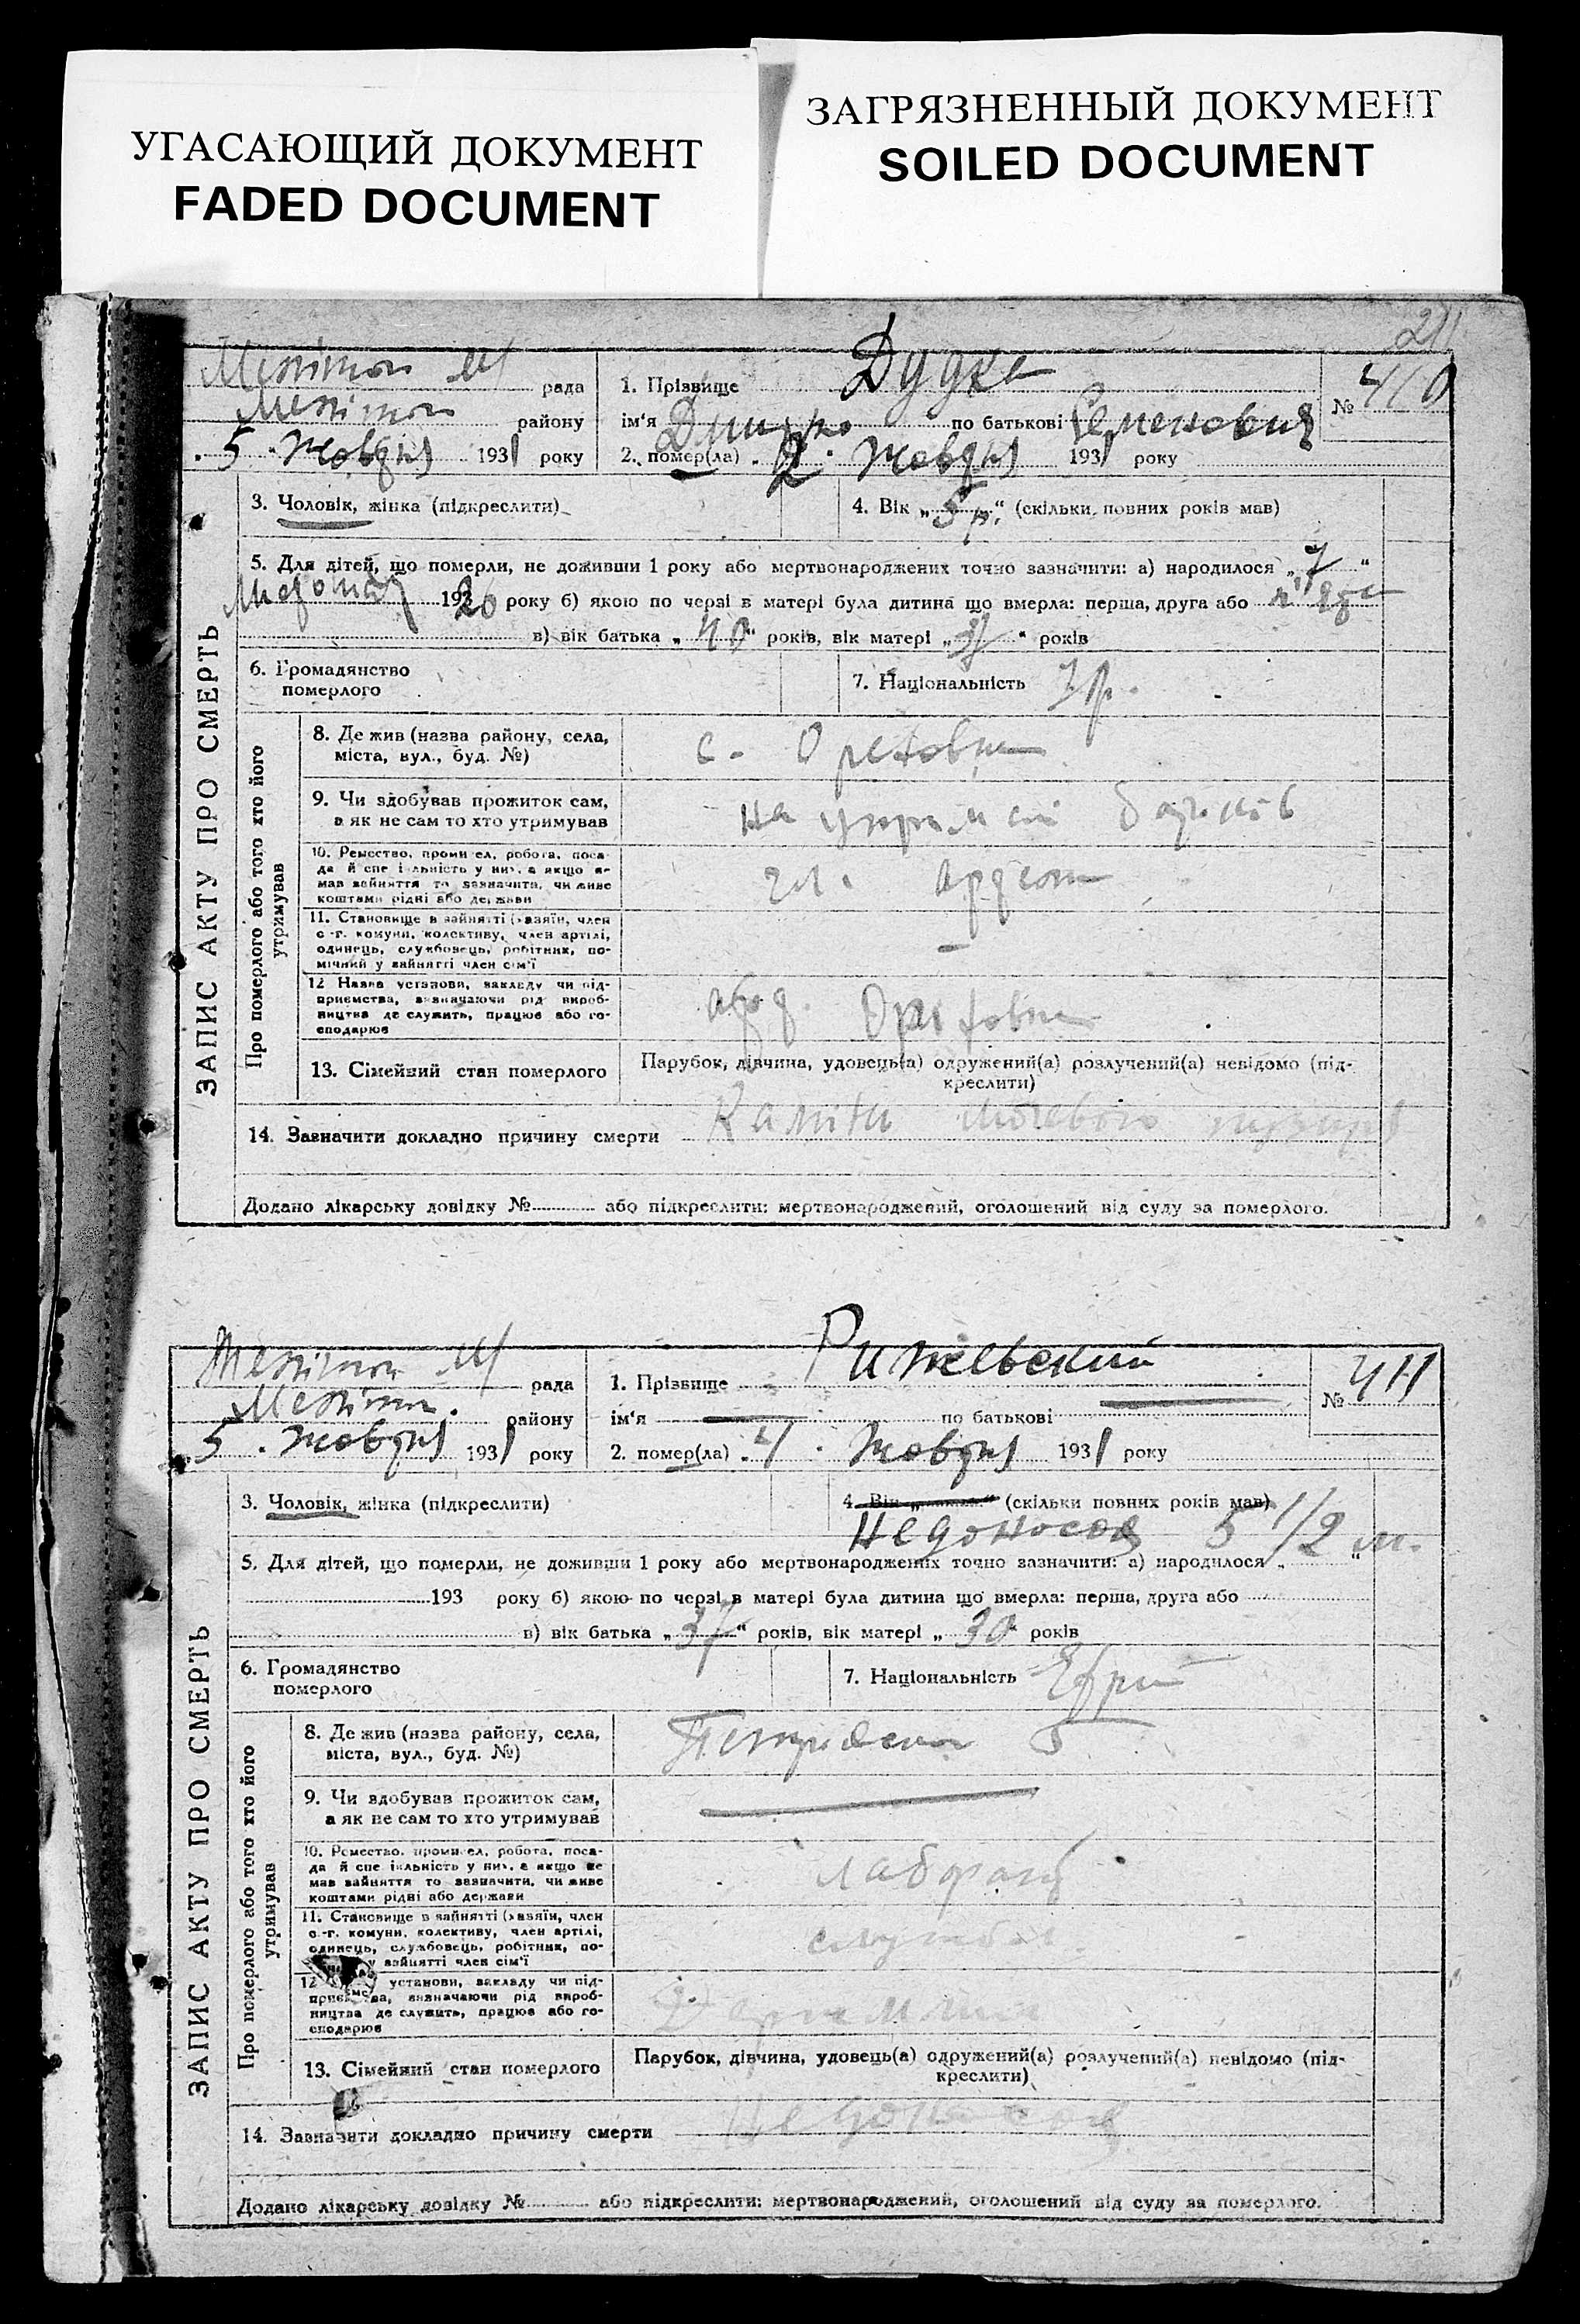 УГАСАЮЩИЙ ДОКУМЕНТ
FADED DOCUMENT
ЗАГРЯЗНЕННЫЙ ДОКУМЕНТ
SOILED DOCUMENT
рада
району
5 Жовтня 1931 року
1. Прізвище Дудка
№ 410
ім'я Дмитро по батькові Семенович
2. помер(ла) 2 Жовтня 1931 року
ЗАПИС АКТУ ПРО СМЕРТЬ
3. Чоловік, жінка (підкреслити)
4. Вік „5 р.“ (скільки повних років мав)
5. Для дітей, що померли, не доживши 1 року або мертвонароджених точно зазначити: а) народилося „7“
193 року б) якою по черзі в матері була дитина що вмерла: перша, друга або
в) вік батька „40“ років, вік матері „ “ років
6. Громадянство померлого
7. Національність
Про померлого або того хто його утримував
8. Де жив (назва району, села, міста, вул., буд. №)
с.
9. Чи здобував прожиток сам, а як не сам то хто утримував
на утриман батьків
10. Ремество, промисел, робота, поса-
да й спеціяльність у них, а якщо не
мав зайняття то зазначити, чи живе
коштами рідні або держави
11. Становище в зайнятті (хазяїн, член
с.-г. комуни, колективу, член артілі,
одинець, службовець, робітник, по-
мічний у зайнятті член сім'ї
12 Назва установи, закладу чи під-
приємства, зазначаючи рід вироб-
ництва де служить, працює або го-
сподарює
13. Сімейний стан померлого
Парубок, дівчина, удовець(а) одружений(а) розлучений(а) невідомо (під-
креслити)
14. Зазначити докладно причину смерти Каміни мочевого
Додано лікарську довідку № або підкреслити: мертвонароджений, оголошений від суду за померлого.
рада
району
5 Жовтня 1931 року
1. Прізвище Рижевский
№ 411
ім'я — по батькові —
2. помер(ла) 4 Жовтня 1931 року
ЗАПИС АКТУ ПРО СМЕРТЬ
3. Чоловік, жінка (підкреслити)
4. Вік „ “ (скільки повних років мав)
Недоносок 5 1/2 м.
5. Для дітей, що померли, не доживши 1 року або мертвонароджених точно зазначити: а) народилося „ “
193 року б) якою по черзі в матері була дитина що вмерла: перша, друга або
в) вік батька „37“ років, вік матері „30“ років
6. Громадянство померлого
7. Національність Євреї
Про померлого або того хто його утримував
8. Де жив (назва району, села, міста, вул., буд. №)
5
9. Чи здобував прожиток сам, а як не сам то хто утримував
—
10. Ремество, промисел, робота, поса-
да й спеціяльність у них, а якщо не
мав зайняття то зазначити, чи живе
коштами рідні або держави
лаборант
11. Становище в зайнятті (хазяїн, член
с.-г. комуни, колективу, член артілі,
одинець, службовець, робітник, по-
у зайнятті член сім'ї
службов
12 установи, закладу чи під-
приємства, зазначаючи рід вироб-
ництва де служить, працює або го-
сподарює
13. Сімейний стан померлого
Парубок, дівчина, удовець(а) одружений(а) розлучений(а) невідомо (під-
креслити)
14. Зазначити докладно причину смерти Недоносок
Додано лікарську довідку № або підкреслити: мертвонароджений, оголошений від суду за померлого.